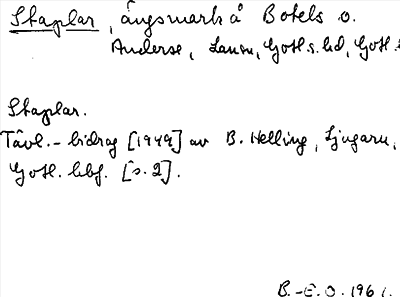 Staplar, ängsmark å Botels o.
Anderse, Lau sn, Gotl. s. hd, Gotl. l
Staplar.
Tävl.-bidrag [1949] av B. Helling, Ljugarn,
Gotl. hbf. [s. 2].
B.-E. O. 1961.